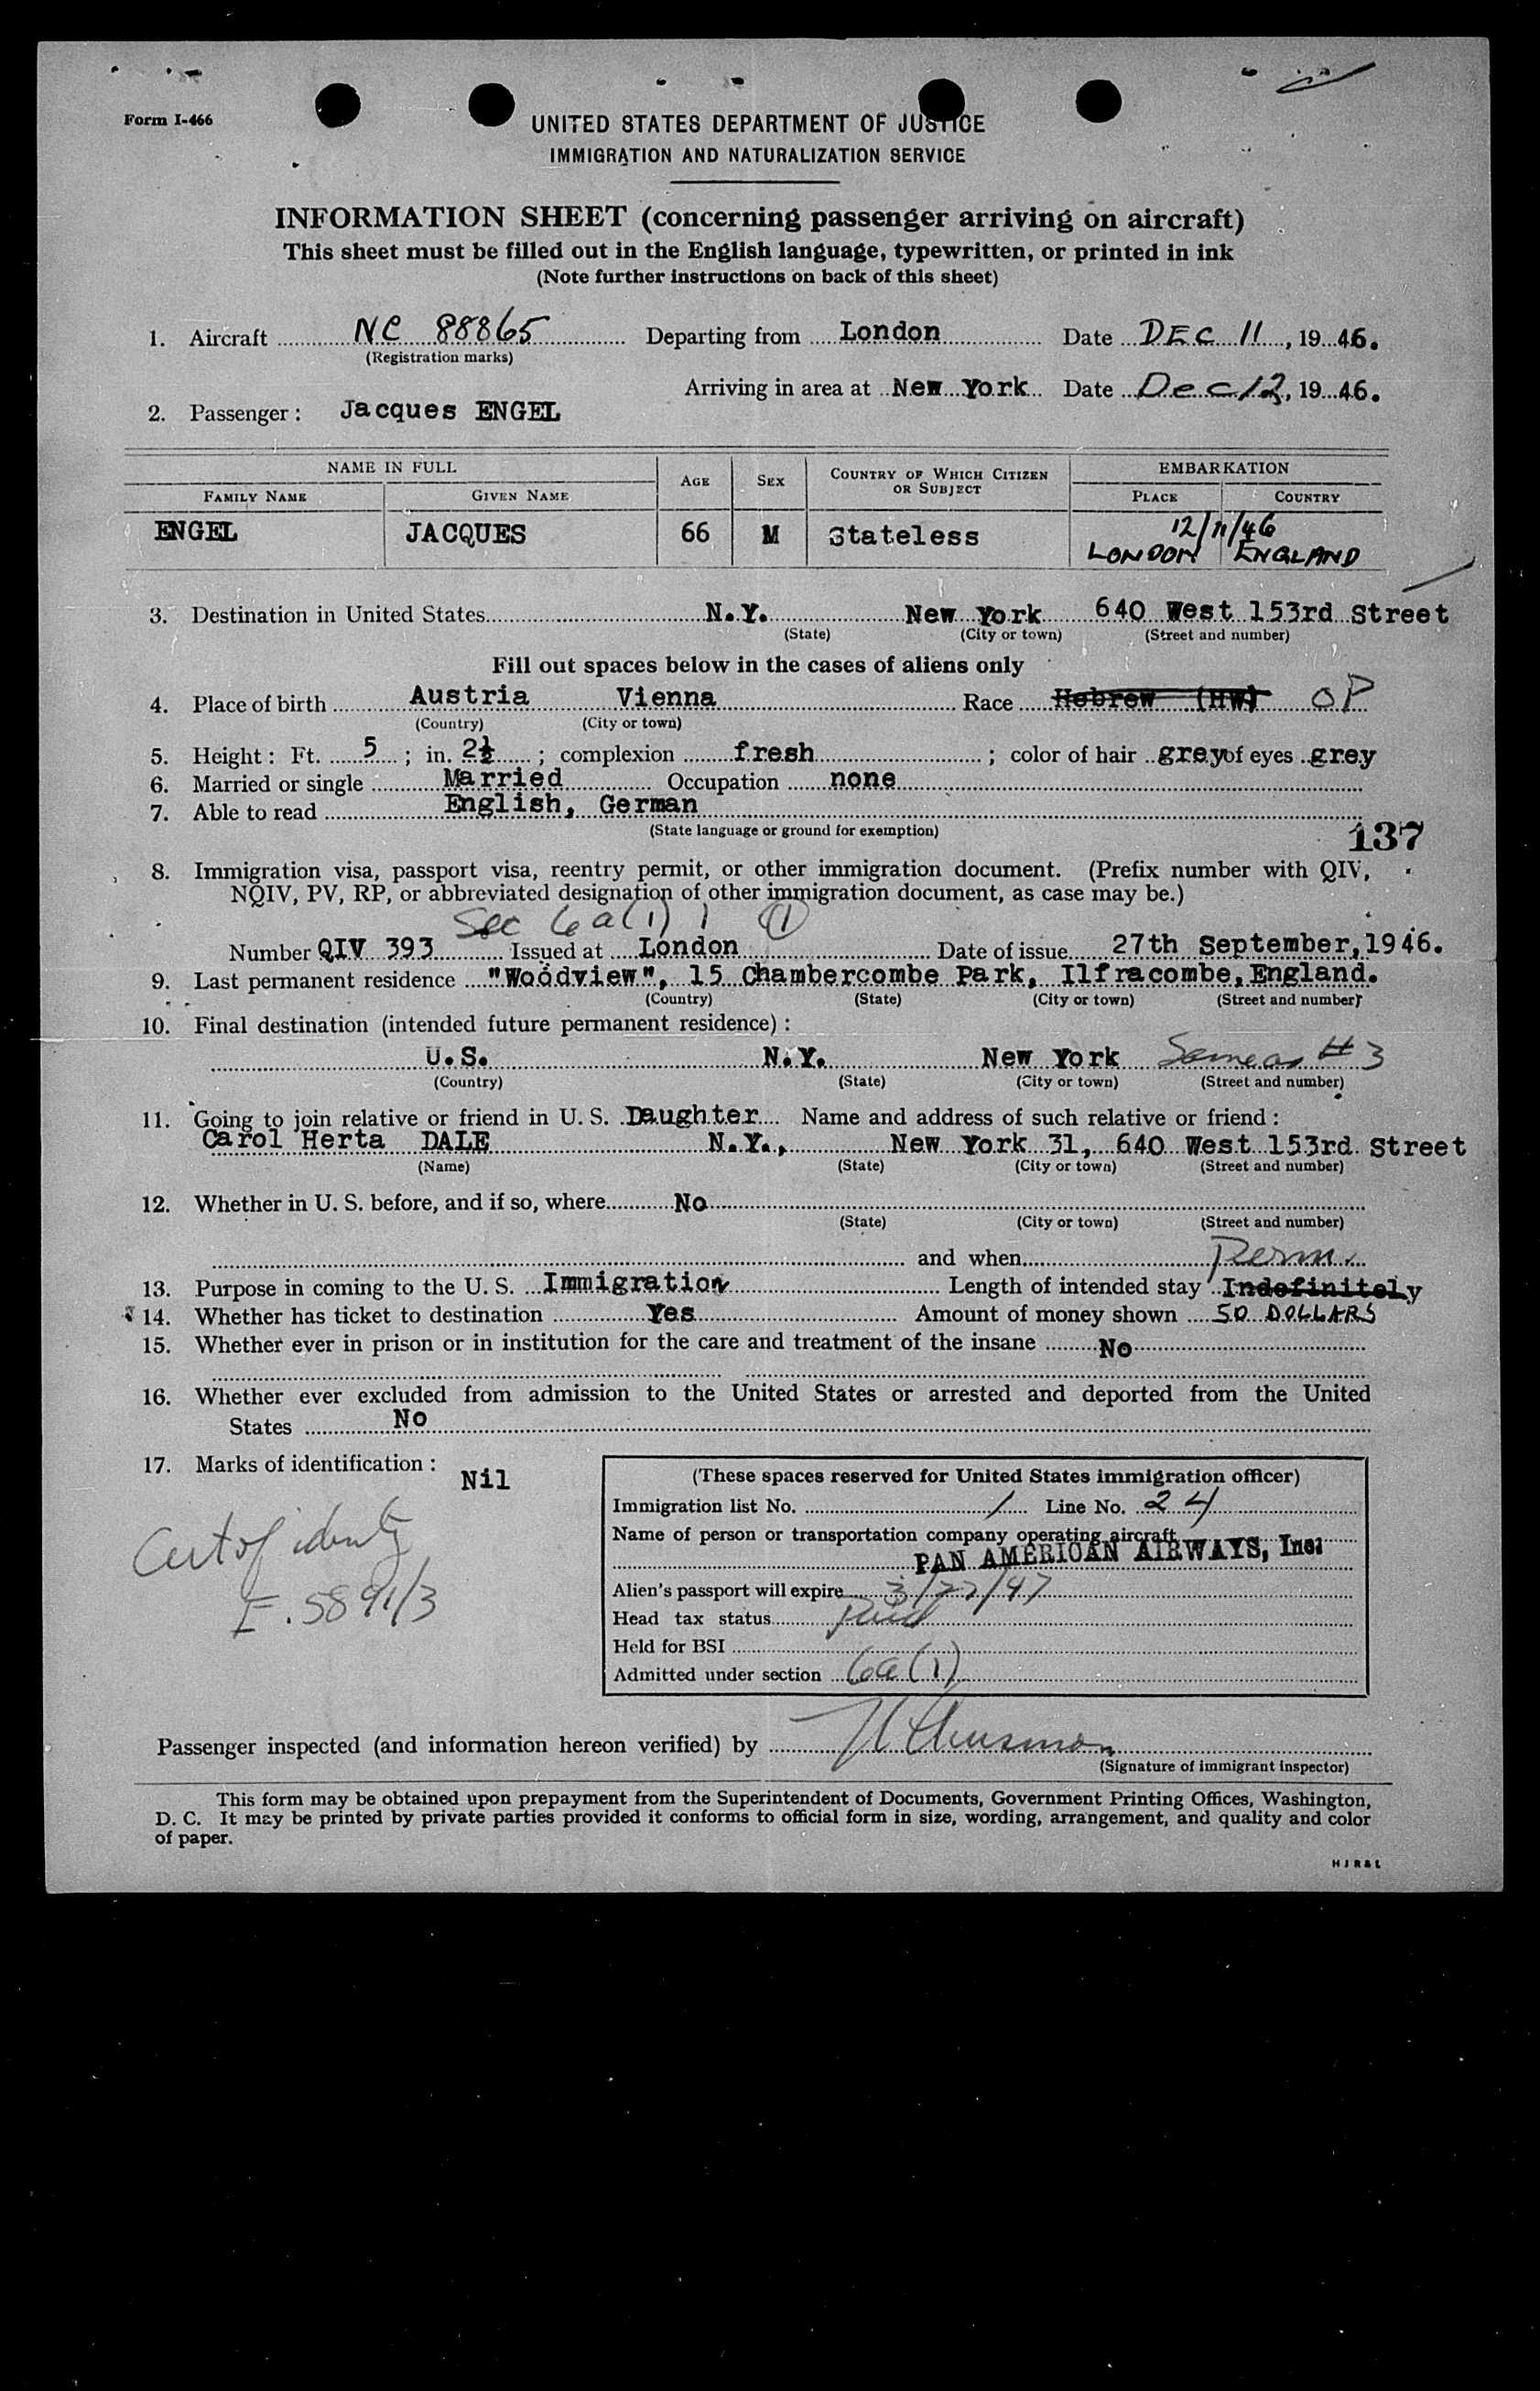 Form I-466
UNITED STATES DEPARTMENT OF JUSTICE
IMMIGRATION AND NATURALIZATION SERVICE
INFORMATION SHEET (concerning passenger arriving on aircraft)
This sheet must be filled out in the English language, typewritten, or printed in ink
(Note further instructions on back of this sheet)
1. Aircraft NC 88865 Departing from London Date DEC 11, 1946.
(Registration marks)
Arriving in area at New York Date Dec 12, 1946.
2. Passenger: Jacques ENGEL
NAME IN FULL AGE SEX COUNTRY OF WHICH CITIZEN OR SUBJECT EMBARKATION
FAMILY NAME GIVEN NAME PLACE COUNTRY
12/11/46
ENGEL JACQUES 66 M Stateless LONDON ENGLAND
3. Destination in United States N.Y. New York 640 West 153rd Street
(State) (City or town) (Street and number)
Fill out spaces below in the cases of aliens only
4. Place of birth Austria Vienna Race Hebrew (HW) OP
(Country) (City or town)
5. Height: Ft. 5; in. 2½; complexion fresh; color of hair grey of eyes grey
6. Married or single Married Occupation none
7. Able to read English, German
(State language or ground for exemption)
137
8. Immigration visa, passport visa, reentry permit, or other immigration document. (Prefix number with QIV,
NQIV, PV, RP, or abbreviated designation of other immigration document, as case may be.)
Sec 6a(1) 1
Number QIV 393 Issued at London Date of issue 27th September, 1946.
9. Last permanent residence "Woodview", 15 Chambercombe Park, Ilfracombe, England.
(Country) (State) (City or town) (Street and number)
10. Final destination (intended future permanent residence):
U.S. N.Y. New York Same as #3
(Country) (State) (City or town) (Street and number)
11. Going to join relative or friend in U. S. Daughter Name and address of such relative or friend:
Carol Herta DALE N.Y., New York 31, 640 West 153rd Street
(Name) (State) (City or town) (Street and number)
12. Whether in U. S. before, and if so, where No
(State) (City or town) (Street and number)
and when
Perm.
13. Purpose in coming to the U. S. Immigration Length of intended stay Indefinitely
14. Whether has ticket to destination Yes Amount of money shown 50 DOLLARS
15. Whether ever in prison or in institution for the care and treatment of the insane No
16. Whether ever excluded from admission to the United States or arrested and deported from the United
States No
17. Marks of identification:
Nil
Cert of identy
E. 5891/3
(These spaces reserved for United States immigration officer)
Immigration list No. 1 Line No. 24
Name of person or transportation company operating aircraft
PAN AMERICAN AIRWAYS, Inc.
Alien's passport will expire 3/27/47
Head tax status Paid
Held for BSI
Admitted under section 6a(1)
Passenger inspected (and information hereon verified) by
(Signature of immigrant inspector)
This form may be obtained upon prepayment from the Superintendent of Documents, Government Printing Offices, Washington,
D. C. It may be printed by private parties provided it conforms to official form in size, wording, arrangement, and quality and color
of paper.
H J R & L